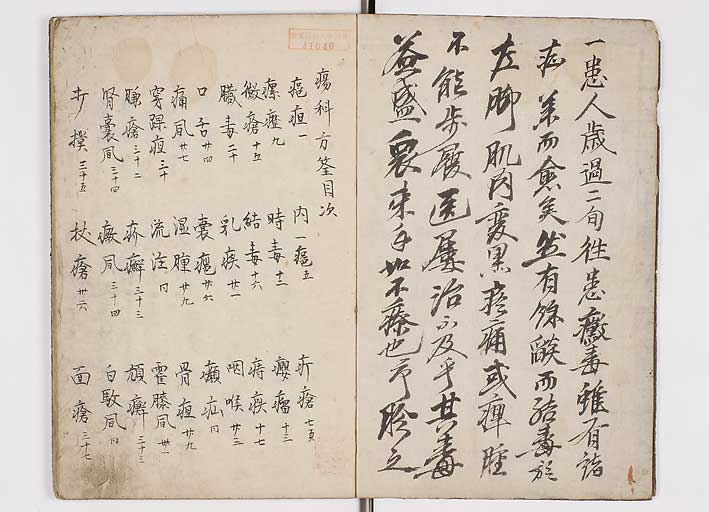 一患人歳過二旬往患黴毒雖有諸
症漸而愈矣然有餘毒而結毒於
左脚肌肉変黒疼痛或痺腫
不能歩履医屡治不及乎其毒
益盛衆束手如不療也予胗之
瘍科方筌目次
疽疽一 内一疽五 疔瘡七頁
瘰癧九 時毒十三 癭瘤十三
黴瘡十五 結毒十六 痔疾十七
臓毒二十 乳疾廿一 咽喉廿三
口舌廿四 嚢癰廿六 癩疝同
痛凨廿七 湿腫廿九 骨疽廿九
穿踝疽三十 流注同 鶴膝凨卅一
臁瘡三十二 疥癬三十三 頑癬三十三
腎嚢凨三十四 癜凨三十四 白駁凨同
打撲三十五 杖瘡卅六 面瘡三十七
41040